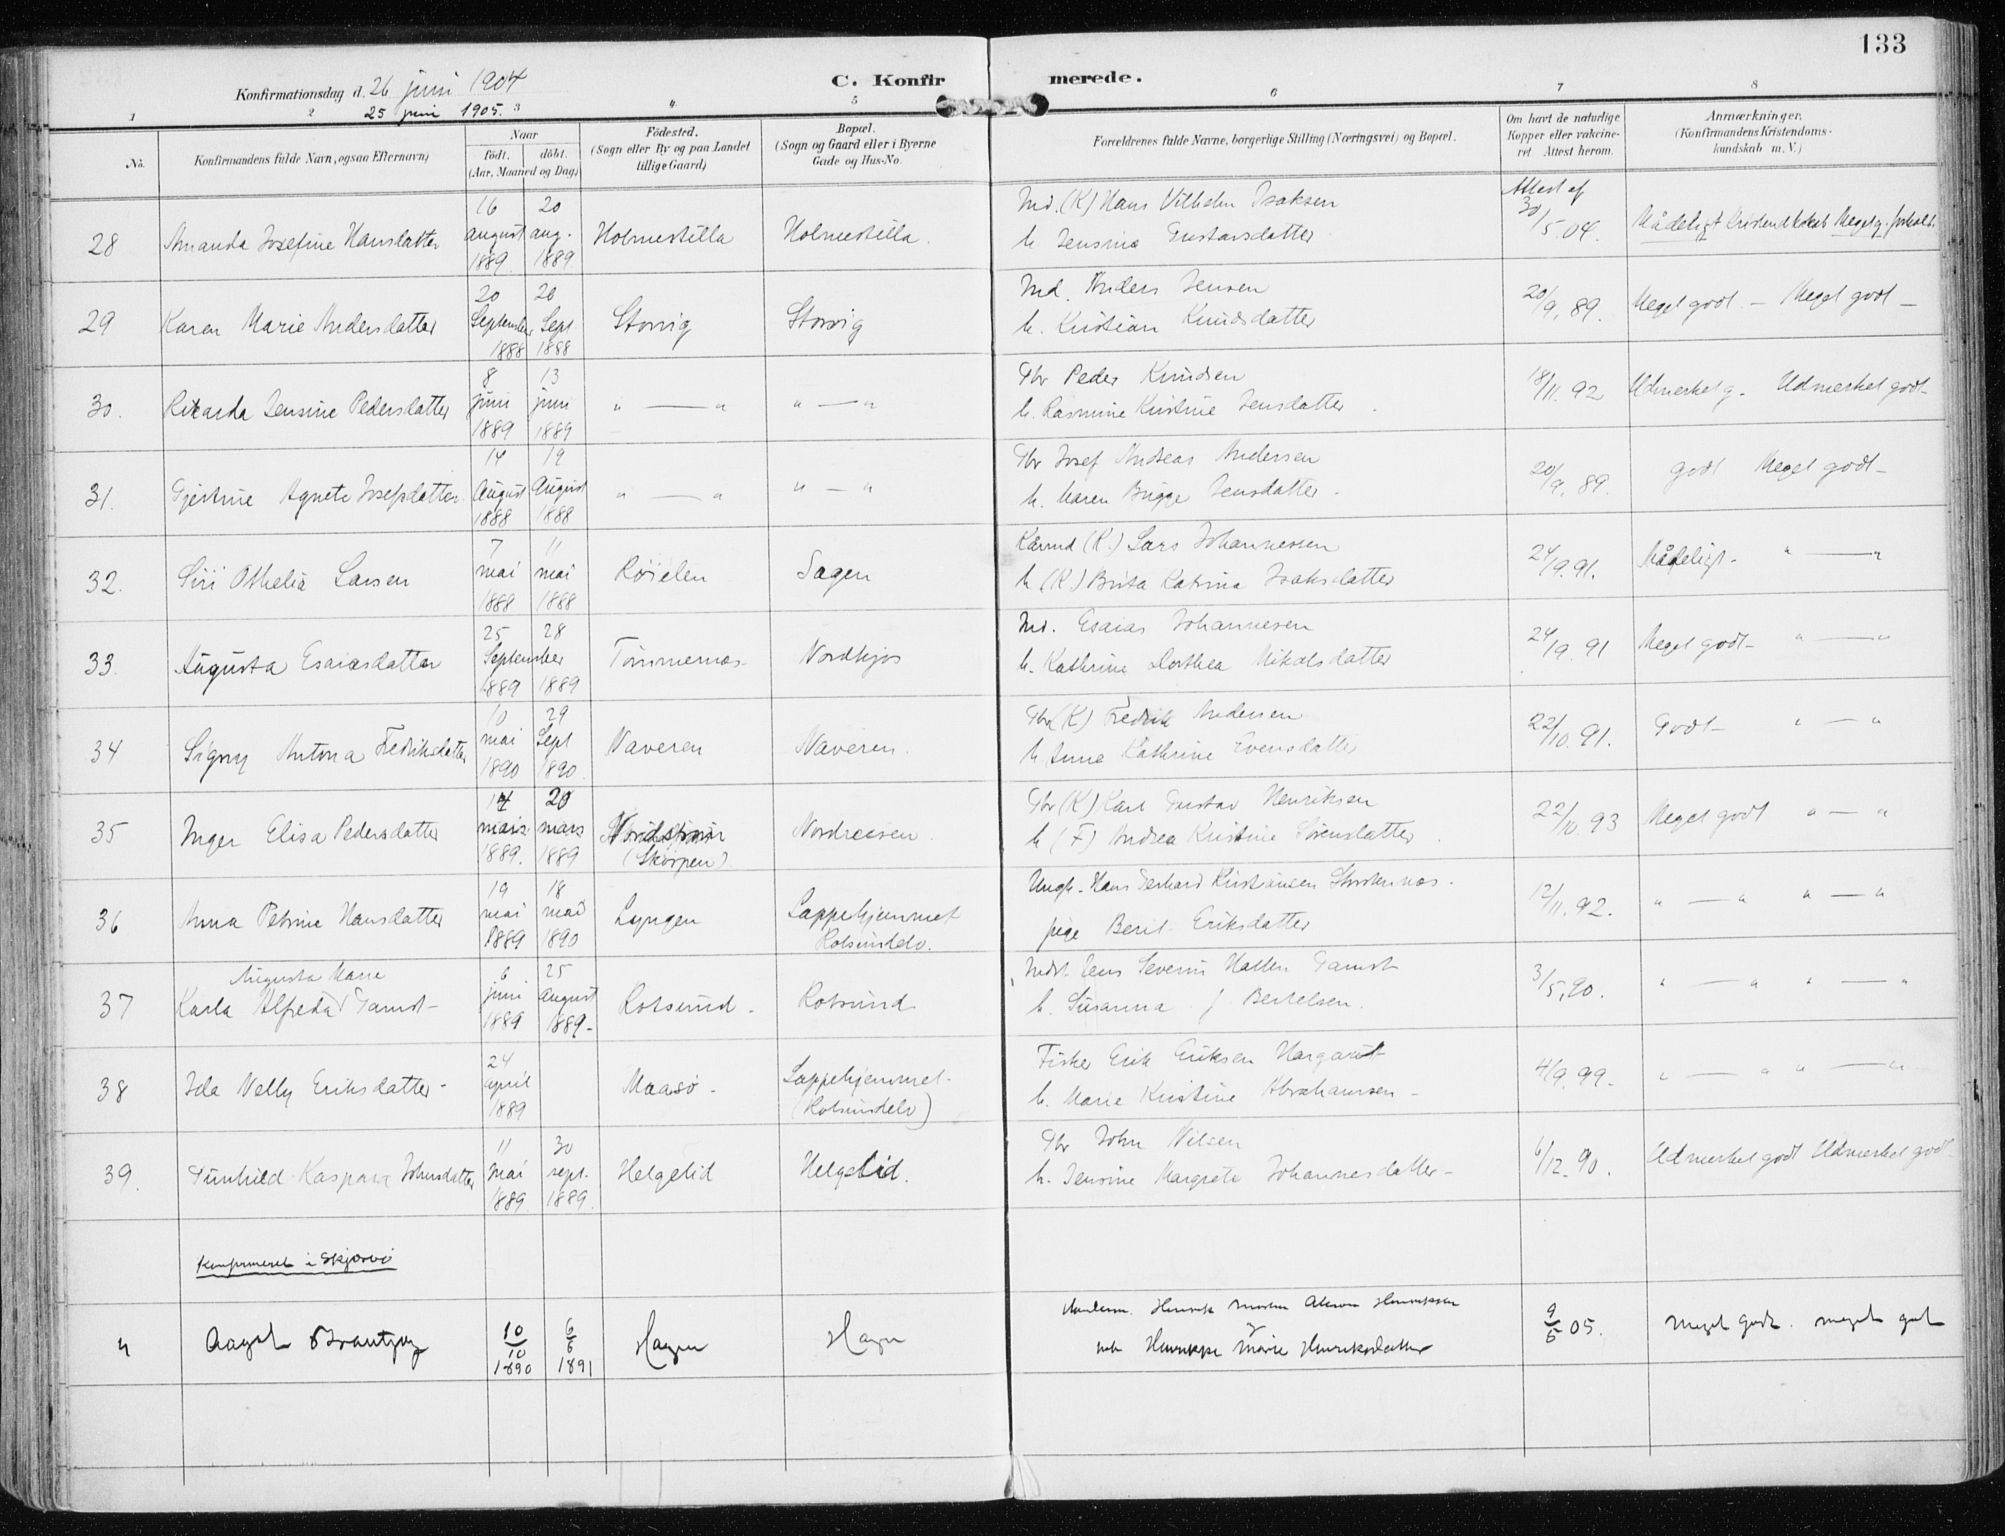 133
C. Konfirmerede.
Konfirmationsdag d. 26 juni 1904
25 juni 1905.
1 2 3 4 5 6 7 8
No.
Konfirmandens fulde Navn, ogsaa Efternavn)
Naar
født. døbt.
(Aar, Maaned og Dag)
Fødested.
(Sogn eller By og paa Landet
tillige Gaard)
Bopæl.
(Sogn og Gaard eller i Byerne
Gade og Hus-No.
Forældrenes fulde Navne, borgerlige Stilling (Næringsvei) og Bopæl.
Om havt de naturlige
Kopper eller vakcine-
ret Attest herom.
Anmærkninger.
(Konfirmandens Kristendoms-
kundskab m. V.)
28 Amanda Josefine Hansdatter 16 august 1889. 20 aug. 1889 Holmestilla Holmestilla.
Ind. (K) Hans Vilhelm Isaksen
h. Jensine Gustavsdatter
Attest af 30/5.04. Mådeligt
29 Karen Marie Andersdatter 20 September 1888 20 Sept 1888 Storvig Storvig
Ind. Anders Jensen
h. Kristian Knudsdatter
20/9.89. Meget godt — Meget godt —
30. Rikarda Jensine Pedersdatter 8 juni 1889 13 juni 1889 " — " " — "
Gbr Peder Knudsen
h. Rasmine Kristine Jensdatter
18/11.92 Udmerket g. Udmerket godt
31. Gjertine Agnete Josefsdatter 14 August 1888 19 August 1888 " — " " — "
Gbr Josef Andreas Andersen
h. Maren Brigge Jensdatter.
20/9.89. Godt Meget godt
32. Siri Othelia Larsen 7 mai 1888 11 mai 1888 Røielen Sagen
Kårmd (K.) Lars Johannessen
h. (K) Brita Katrina Isaksdatter
24/9.91. Mådeligt. " — "
33. Augusta Esaiasdatter 25 September 1889 28 1889 Tømmernæs Nordkjos
Ind. Esaias Johannesen
h. Kathrine Dorthea Nikolsdatter
24/9.91 Meget godt " — "
34 Signy Antona Fredriksdatter 10 mai 1890 29 Sept 1890. Naveren Naveren.
Gbr (K) Fredrik Andersen
h Anna Kathrine Evensdatter
22/10.91. Godt " — "
35 Inger Elisa Pedersdatter 14 mars 1889. 20 mars 1889 (Skorpen) Nordreisen
Gbr (K) Karl Gustav Henriksen
h (F) Andrea Kristine Sørensdatter
22/10.93 Meget godt " — "
36 Anna Petrine Hansdatter 19 mai 1889 18 mai 1890 Lyngen Lappehjemmet Rotsundelv.
Ungk. Hans Gerhard Kristiansen
pige Beret Eriksdatter
12/11.92. " — " " — "
37 Karla Alfreda Augusta Marie Gamst 6 juni 1889 25 August 1889. Rotsund. Rotsund
Jens Severin Holten Gamst
h. Susanna f Bertelsen.
3/5.90. " — " " — "
38 Ida Nelly Eriksdatter. 24 april 1889 Maasø. Lappehjemmet. (Rotsundelv)
Fisker Erik Eriksen Hargaut
h. Marie Kristine Abrahamsen
4/9.99. " — " " — "
39. Gunhild Kaspara Johnsdatter 11 mai 1889. 30 sept. 1889. Helgelid Helgelid.
Gbr John Nilsen
h. Jensine Margrete Johannesdatter
6/12.90. Udmerket godt Udmerket godt
Konfirmeret i Skjærvø
4 Aagot 10/10 1890 6/6 1891 Hagen Hagen
Henrik Morten Henriksen
Marie Henriksdatter
9/5 05. meget godt. meget godt